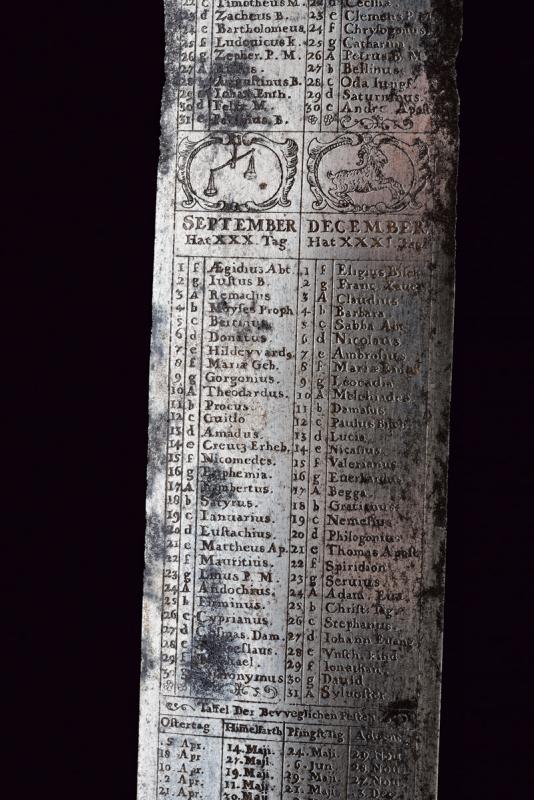 22 c Timotheus M. 22 d Cecilia
23 d Zacheus B. 23 e Clemens P. M
24 e Bartholomeus. 24 f Chrysogonus
25 f Ludouicus k. 25 g Catharina
26 g Zepher. P. M. 26 A Petrus B. M
27 A 27 b Bellinus
28 Augustinus B. 28 c Oda Iungf.
29 Iohan Enth. 29 d Saturninus.
30 d Felix M. 30 e Andre Apost
31 e B.
SEPTEMBER DECEMBER
Hat XXX. Tag Hat XXXI. Tag
1 f Ægidius Abt 1 f Eligius Bisch
2 g Iustus B. 2 g Franc Xauer
3 A Remaclus 3 A Claudius
4 b Moyses Proph 4 b Barbara
5 c Bertinus 5 c Sabba Abt
6 d Donatus 6 d Nicolaus
7 e Hildevvard9 7 e Ambrosius
8 f Mariæ Geb. 8 f Mariæ
9 g Gorgonius. 9 g Leocadia
10 A Theodardus. 10 A Melchiades
11 b Procus 11 b Damasus
12 c Guido 12 c Paulus Bisch
13 d Amadus. 13 d Lucia
14 e Creutz Erheb. 14 e Nicasius
15 f Nicomedes. 15 f Valerianus
16 g Euphemia. 16 g Euerhardus
17 A Lambertus. 17 A Begga
18 b Satyrus. 18 b Gratianus
19 c Ianuarius. 19 c Nemesius
20 d Eustachius 20 d Philogonius
21 e Mattheus Ap. 21 e Thomas Apost
22 f Mauritius. 22 f Spiridion
23 g Linus P. M 23 g Seruius
24 A Andochius. 24 A Adam. Eua
25 b Firminus. 25 b Christ: Tag
26 c Cyprianus 26 c Stephanus.
27 d Cosmas. Dam. 27 d Iohann Euang
28 e 28 e Vnsch. kind
29 f 29 f Ionathan
30 Hieronymus 30 g Dauid
31 A Syluester
Taffel Der Bevveglichen Festen
Ostertag Himelfarth PfingstTag
5 Apr. 14. Maij. 24. Maij. 29 Nov
18 Apr 27. Maij. 6. Jun
10 Apr. 19. Maij. 29. Maij. 27 Nov
2 Apr. 11. Maij. 21. Maij. 3 Dec
21 Apr. 30. Maij